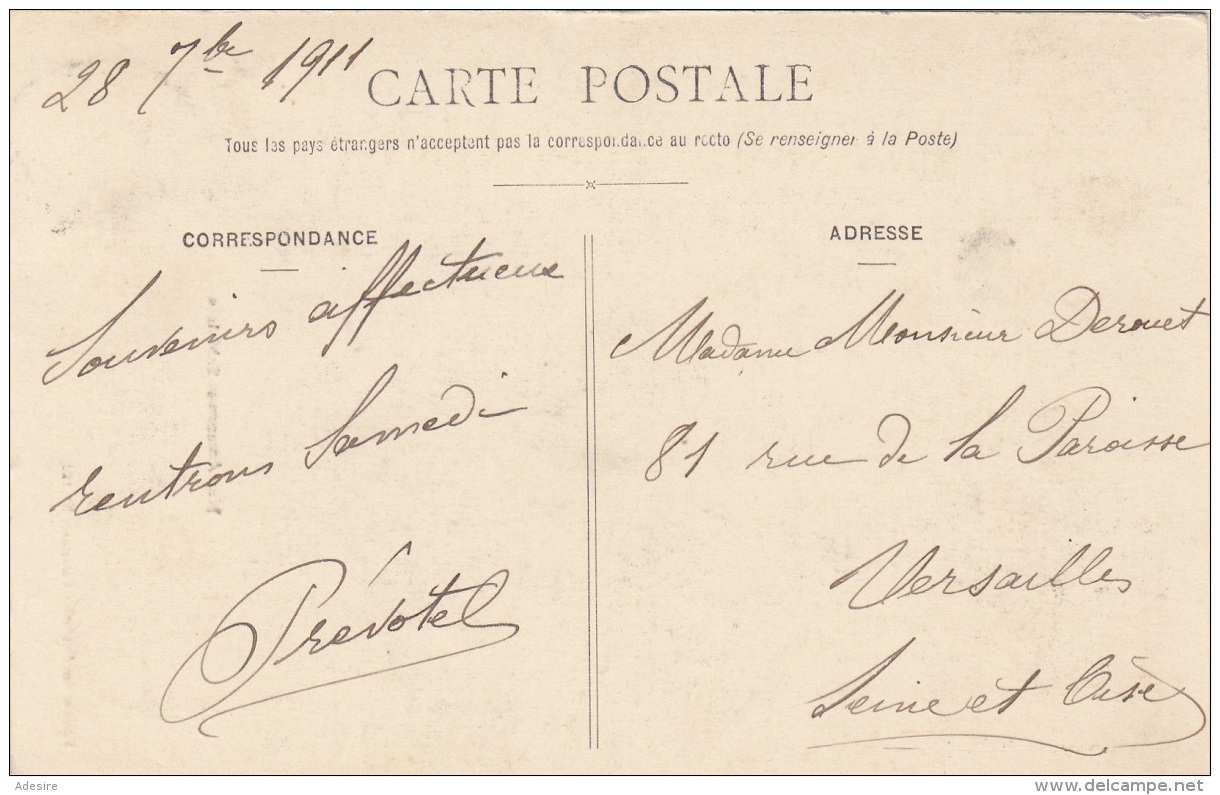 28 7bre 1911
CARTE POSTALE
Tous les pays étrangers n'acceptent pas la correspondance au recto (Se renseigner à la Poste)
CORRESPONDANCE
Souvenirs affectueux
rentrons Samedi
Prévotel
ADRESSE
Madame Monsieur Derouet
81 rue de la Paroisse
Versailles
Seine et Oise
Adesire
www.delcampe.net